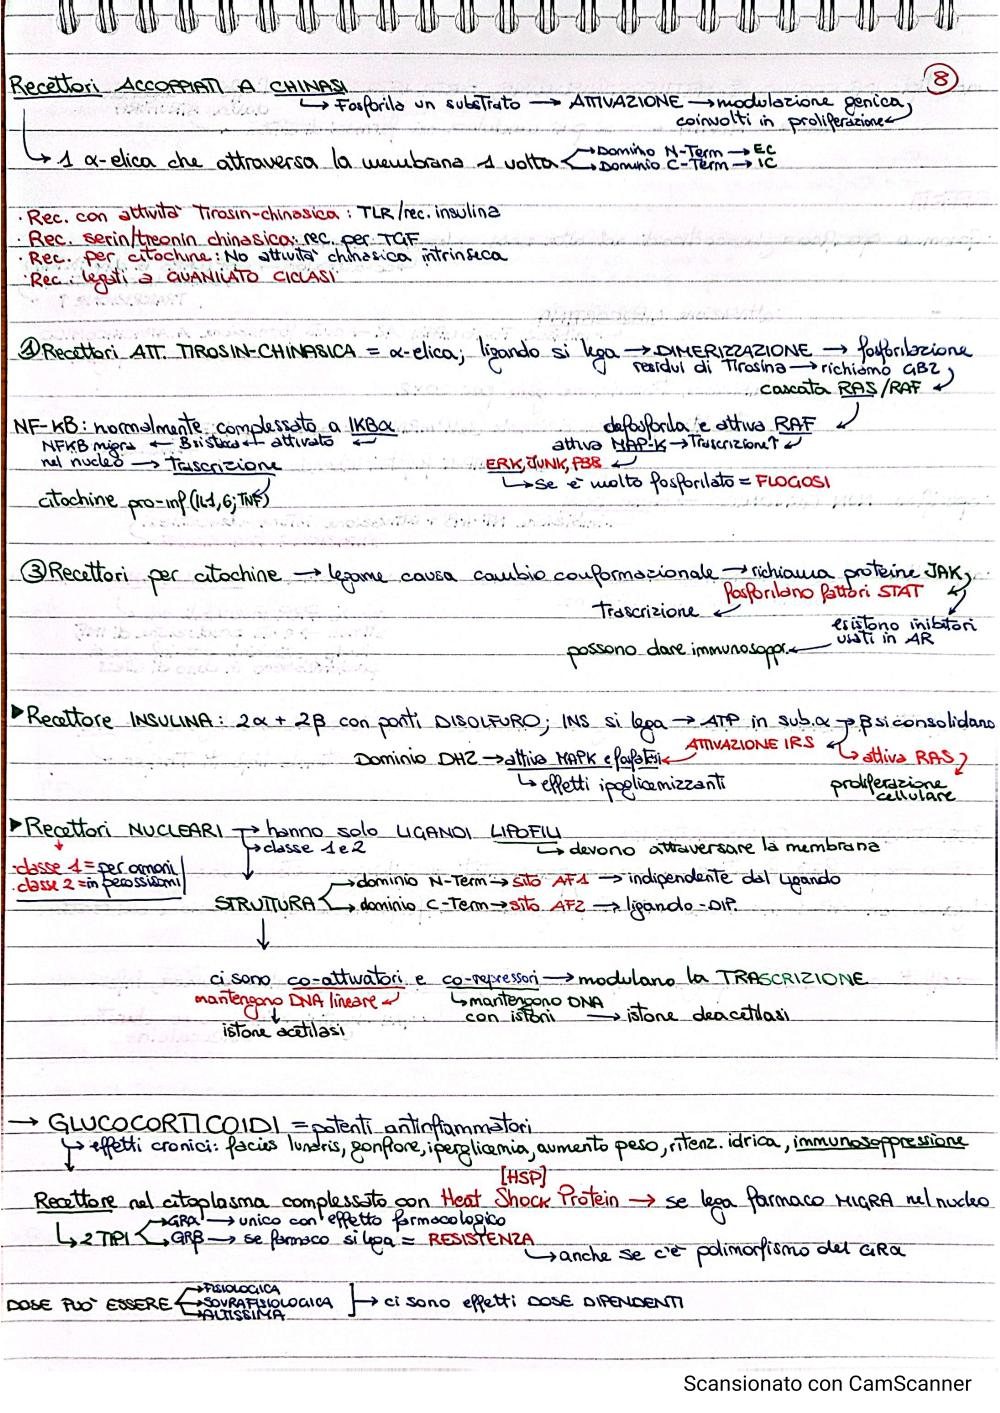 8
Recettori ACCOPPIATI A CHINASI
↳ Fosforila un substrato → ATTIVAZIONE → modulazione genica,
coinvolti in proliferazione
↳ 1 α-elica che attraversa la membrana 1 volta
→ Dominio N-Term → EC
→ Dominio C-Term → IC
· Rec. con attività Tirosin-chinasica: TLR/rec. insulina
· Rec. serin/treonin chinasica: rec. per TGF
· Rec. per citochine: No attività chinasica intrinseca
· Rec. legati a GUANILATO CICLASI
① Recettori ATT. TIROSIN-CHINASICA = α-elica; ligando si lega → DIMERIZZAZIONE → fosforilazione
residui di Tirosina → richiamo GB2
cascata RAS/RAF
NF-KB: normalmente complessato a IKBα
defosforila e attiva RAF
NFKB migra ← B si stacca ← attivato
attiva MAP-K → Trascrizione↑
nel nucleo → Trascrizione
ERK, JUNK, P38
↳ se è molto fosforilato = FLOGOSI
citochine pro-inf (IL1,6; TNF)
③ Recettori per citochine → legame causa cambio conformazionale → richiama proteine JAK,
fosforilano fattori STAT
Trascrizione
esistono inibitori
usati in AR
possono dare immunosoppr.
▶ Recettore INSULINA: 2α + 2β con ponti DISOLFURO; INS si lega → ATP in sub.α → β si consolidano
ATTIVAZIONE IRS
↳ attiva RAS
Dominio DH2 → attiva MAPK e fosfatasi
↳ effetti ipoglicemizzanti
proliferazione
cellulare
▶ Recettori NUCLEARI → hanno solo LIGANDI LIPOFILI
→ classe 1 e 2
↳ devono attraversare la membrana
· classe 1 = per ormoni
· classe 2 = in perossisomi
STRUTTURA
→ dominio N-Term → sito AF1 → indipendente dal ligando
→ dominio C-Term → sito AF2 → ligando-DIP.
ci sono co-attivatori e co-repressori → modulano la TRASCRIZIONE
mantengono DNA lineare
↳ mantengono DNA
con istoni → istone deacetilasi
istone acetilasi
→ GLUCOCORTICOIDI = potenti antinfiammatori
↳ effetti cronici: facies lunaris, gonfiore, iperglicemia, aumento peso, ritenz. idrica, immunosoppressione
[HSP]
Recettore nel citoplasma complessato con Heat Shock Protein → se lega farmaco MIGRA nel nucleo
↳ 2 TIPI
→ GRα → unico con effetto farmacologico
→ GRβ → se farmaco si lega = RESISTENZA
↳ anche se c'è polimorfismo del GRα
DOSE PUÒ ESSERE
→ FISIOLOGICA
→ SOVRAFISIOLOGICA
→ ALTISSIMA
→ ci sono effetti DOSE DIPENDENTI
Scansionato con CamScanner